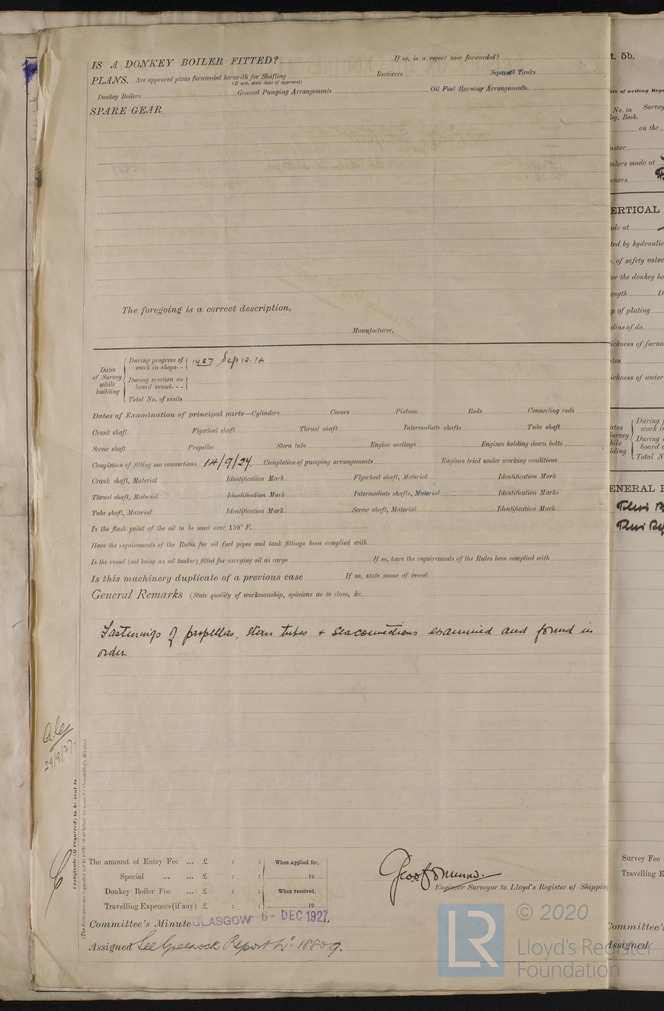 IS A DONKEY BOILER FITTED? If so, is a report now forwarded?
PLANS. Are approved plans forwarded herewith for Shafting Receivers Separate Tanks
(If not, state date of approval)
Donkey Boilers General Pumping Arrangements Oil Fuel Burning Arrangements
SPARE GEAR
The foregoing is a correct description,
Manufacturer.
Dates of Survey while building
During progress of work in shops-- 1927 Sep 12. 14
During erection on board vessel---
Total No. of visits
Dates of Examination of principal parts—Cylinders Covers Pistons Rods Connecting rods
Crank shaft Flywheel shaft Thrust shaft Intermediate shafts Tube shaft
Screw shaft Propeller Stern tube Engine seatings Engines holding down bolts
Completion of fitting sea connections 14/9/27. Completion of pumping arrangements Engines tried under working conditions
Crank shaft, Material Identification Mark Flywheel shaft, Material Identification Mark
Thrust shaft, Material Identification Mark Intermediate shafts, Material Identification Marks
Tube shaft, Material Identification Mark Screw shaft, Material Identification Mark
Is the flash point of the oil to be used over 150° F.
Have the requirements of the Rules for oil fuel pipes and tank fittings been complied with
Is the vessel (not being an oil tanker) fitted for carrying oil as cargo If so, have the requirements of the Rules been complied with
Is this machinery duplicate of a previous case If so, state name of vessel
General Remarks (State quality of workmanship, opinions as to class, &c.
Fastenings of propellers, stern tubes + sea connections examined and found in
order.
29/9/27
Certificate (if required) to be sent to
The amount of Entry Fee ... £ : : When applied for,
Special ... ... £ : : 19
Donkey Boiler Fee ... £ : : When received,
Travelling Expenses (if any) £ : : 19
Engineer Surveyor to Lloyd's Register of Shipping
Committee's Minute GLASGOW 6- DEC 1927.
Assigned See Greenock Report No 18889.
LR © 2020
Lloyd's Register
Foundation
t. 5b.
No. in Survey
on the
ilers made at
ERTICAL
ted by hydraulic
of safety valve
er the donkey bo
of plating
dius of do.
ickness of furna
ickness of water
During
Total N
ENERAL
Survey Fee
Travelling E
Committee'
Assigned